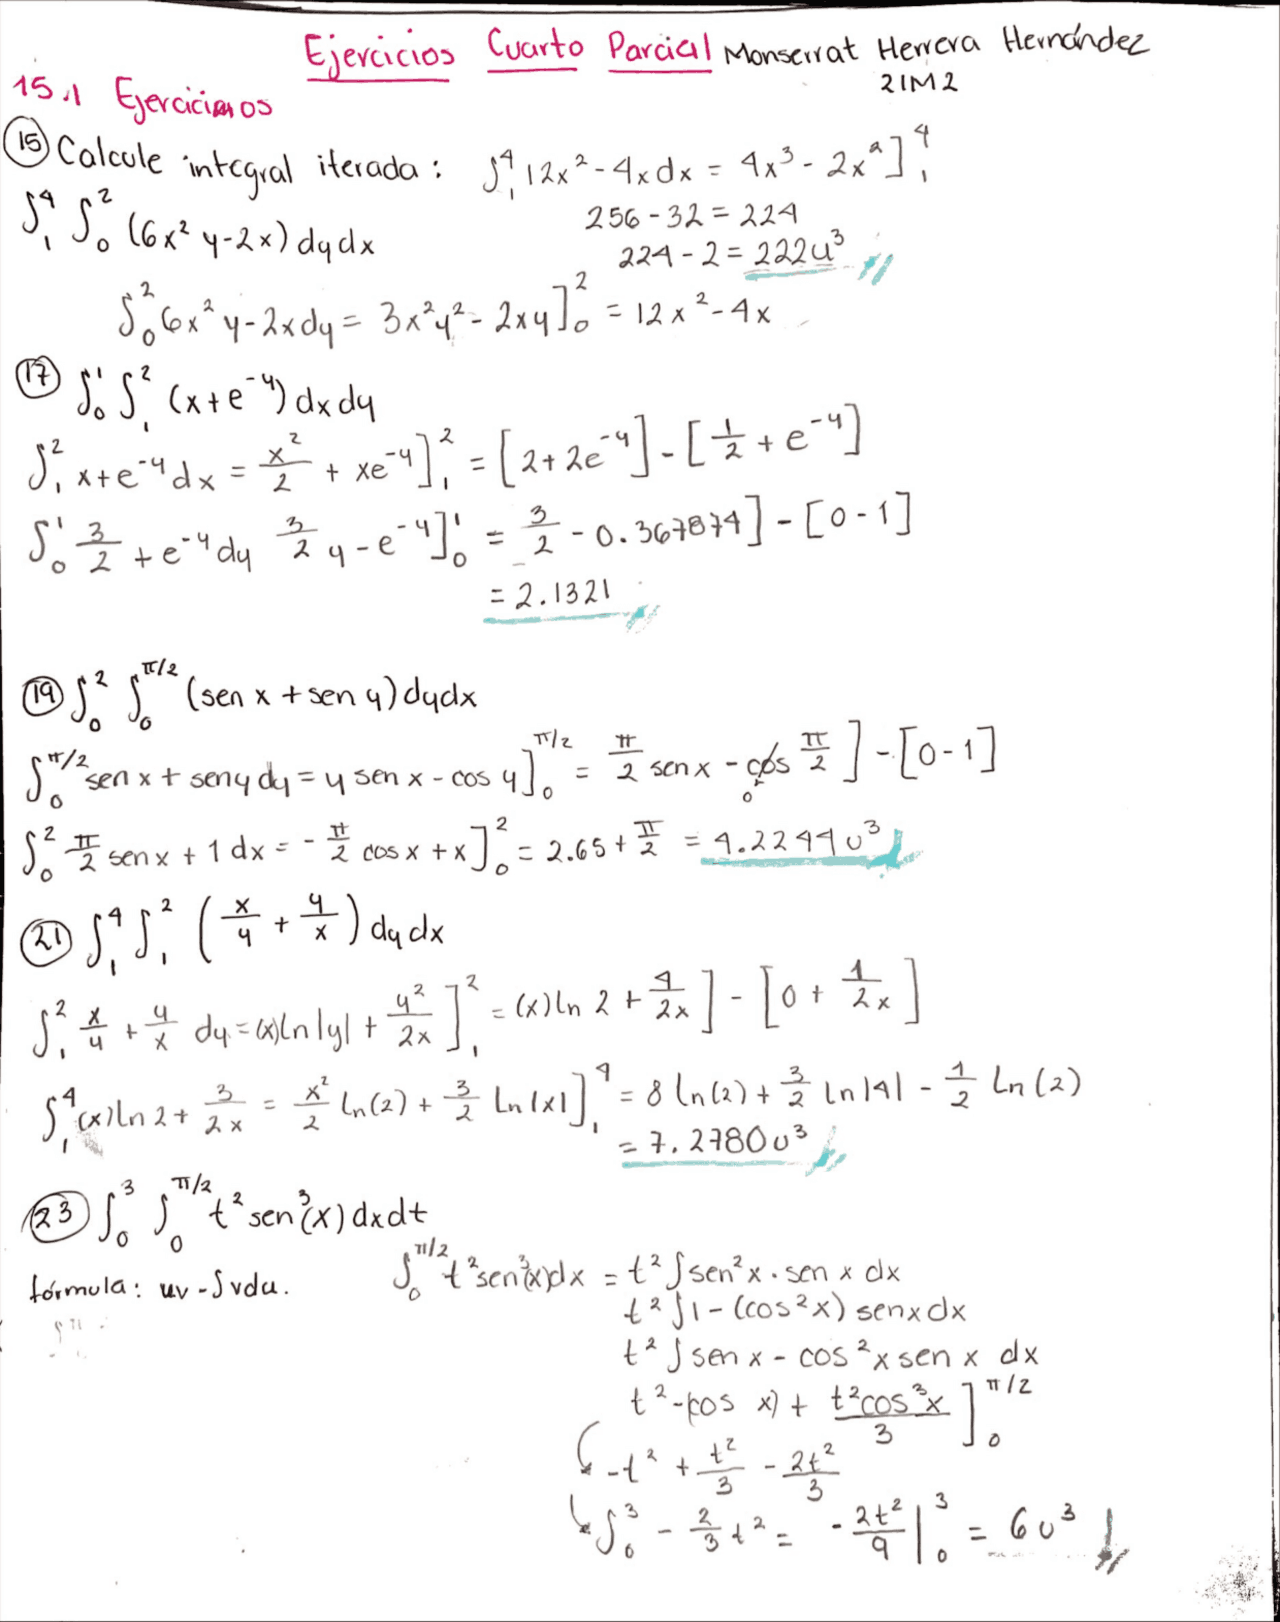 Ejercicios Cuarto Parcial Monserrat Herrera Hernández
21M2
15.1 Ejercicios
(15) Calcule integral iterada: ∫₁⁴ 12x² - 4x dx = 4x³ - 2x² ]₁⁴
256 - 32 = 224
∫₁⁴ ∫₀² (6x² y - 2x) dy dx
224 - 2 = 222u³
∫₀² 6x² y - 2x dy = 3x²y² - 2xy ]₀² = 12x² - 4x
(17) ∫₀¹ ∫₁² (x + e^-y) dx dy
∫₁² x + e^-y dx = x²/2 + xe^-y ]₁² = [2 + 2e^-y] - [1/2 + e^-y]
∫₀¹ 3/2 + e^-y dy 3/2 y - e^-y ]₀¹ = 3/2 - 0.367874] - [0 - 1]
= 2.1321
(19) ∫₀² ∫₀^π/2 (sen x + sen y) dy dx
∫₀^π/2 sen x + sen y dy = y sen x - cos y ]₀^π/2 = π/2 sen x - cos π/2 ] - [0 - 1]
0
∫₀² π/2 sen x + 1 dx = - π/2 cos x + x ]₀² = 2.65 + π/2 = 4.2244u³
(21) ∫₁⁴ ∫₁² (x/y + y/x) dy dx
∫₁² x/y + y/x dy = (x)ln|y| + y²/2x ]₁² = (x)ln 2 + 4/2x ] - [0 + 1/2x ]
∫₁⁴ (x)ln 2 + 3/2x = x²/2 ln(2) + 3/2 Ln|x| ]₁⁴ = 8 ln(2) + 3/2 ln|4| - 1/2 Ln(2)
= 7.2780u³
(23) ∫₀³ ∫₀^π/2 t² sen³(x) dx dt
fórmula: uv - ∫vdu. ∫₀^π/2 t² sen³(x)dx = t² ∫sen²x · sen x dx
t² ∫1 - (cos²x) senx dx
t² ∫sen x - cos²x sen x dx
t² -(cos x) + t²cos³x/3 ]₀^π/2
-t² + t²/3 - 2t²/3
∫₀³ - 2/3 t² = - 2t²/9 |₀³ = 6u³